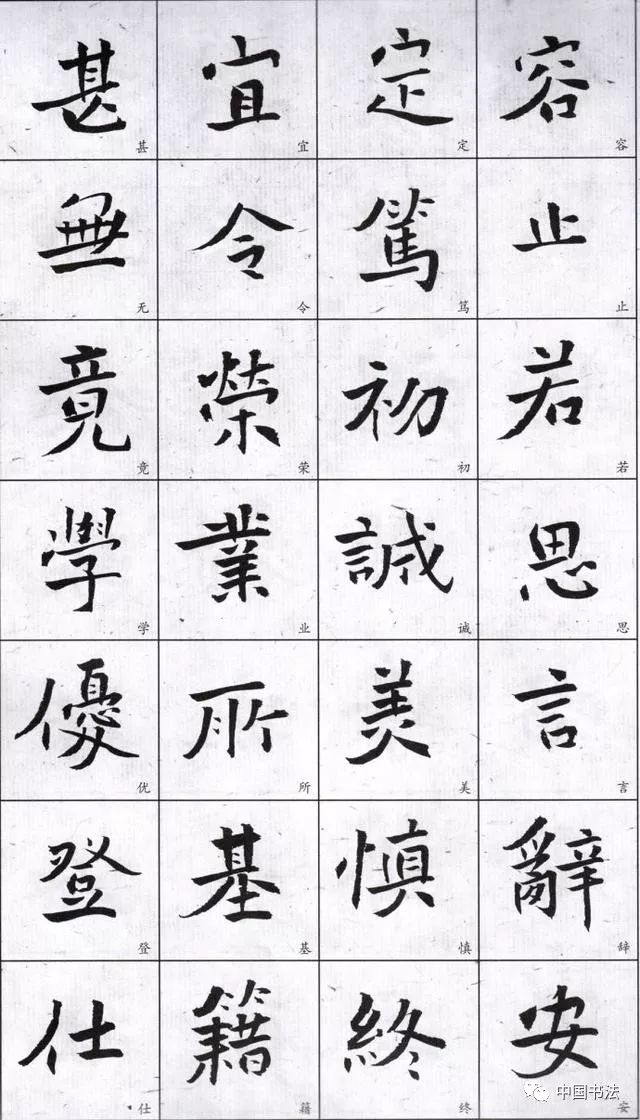 容止若思言辭安
定篤初誠美慎終
宜令榮業所基籍
甚無竟學優登仕
容
止
若
思
言
辞
安
定
笃
初
诚
美
慎
终
宜
令
荣
业
所
基
籍
甚
无
竟
学
优
登
仕
中国书法